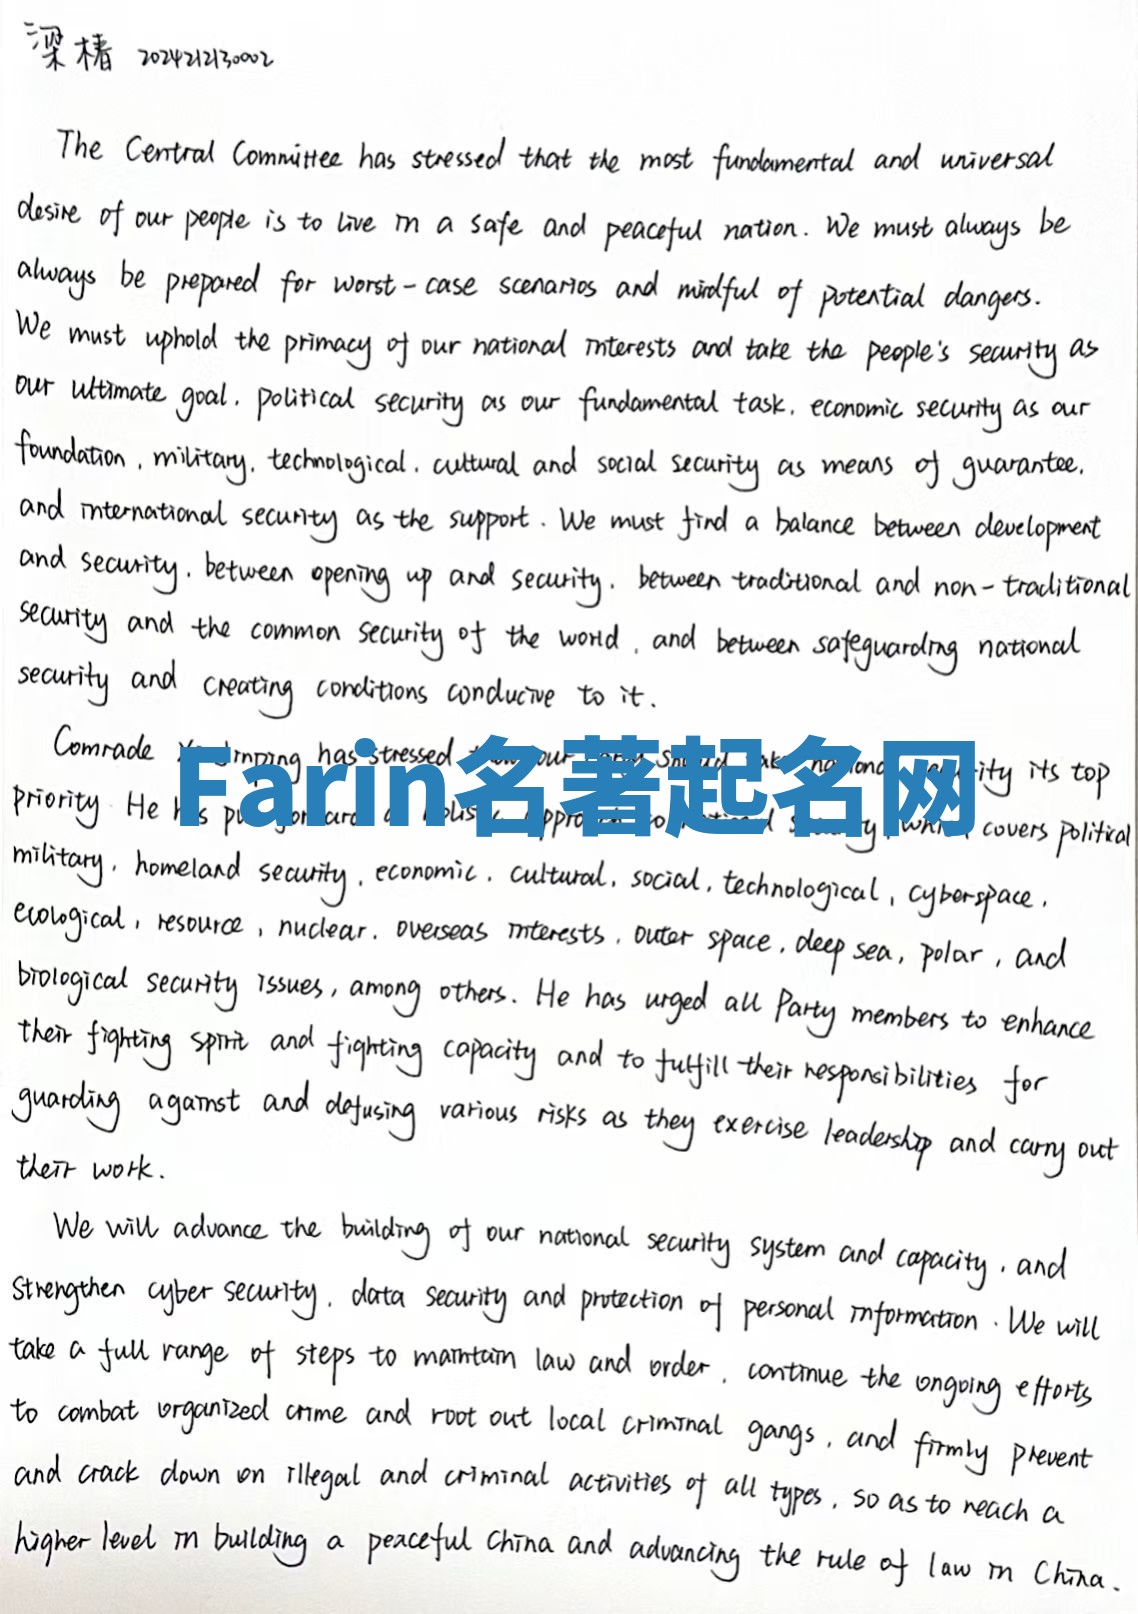 梁椿 2024212130002
The Central Committee has stressed that the most fundamental and universal
desire of our people is to live in a safe and peaceful nation. We must always be
always be prepared for worst-case scenarios and mindful of potential dangers.
We must uphold the primacy of our national interests and take the people's security as
our ultimate goal, political security as our fundamental task, economic security as our
foundation, military, technological, cultural and social security as means of guarantee,
and international security as the support. We must find a balance between development
and security, between opening up and security, between traditional and non-traditional
security and the common security of the world, and between safeguarding national
security and creating conditions conducive to it.
Comrade Jinping has stressed our its top
Farin名著起名网
priority. He covers political
military, homeland security, economic, cultural, social, technological, cyberspace,
ecological, resource, nuclear, overseas interests, outer space, deep sea, polar, and
biological security issues, among others. He has urged all Party members to enhance
their fighting spirit and fighting capacity and to fulfill their responsibilities for
guarding against and defusing various risks as they exercise leadership and carry out
their work.
We will advance the building of our national security system and capacity, and
strengthen cyber security, data security and protection of personal information. We will
take a full range of steps to maintain law and order, continue the ongoing efforts
to combat organized crime and root out local criminal gangs, and firmly prevent
and crack down on illegal and criminal activities of all types, so as to reach a
higher level in building a peaceful China and advancing the rule of law in China.